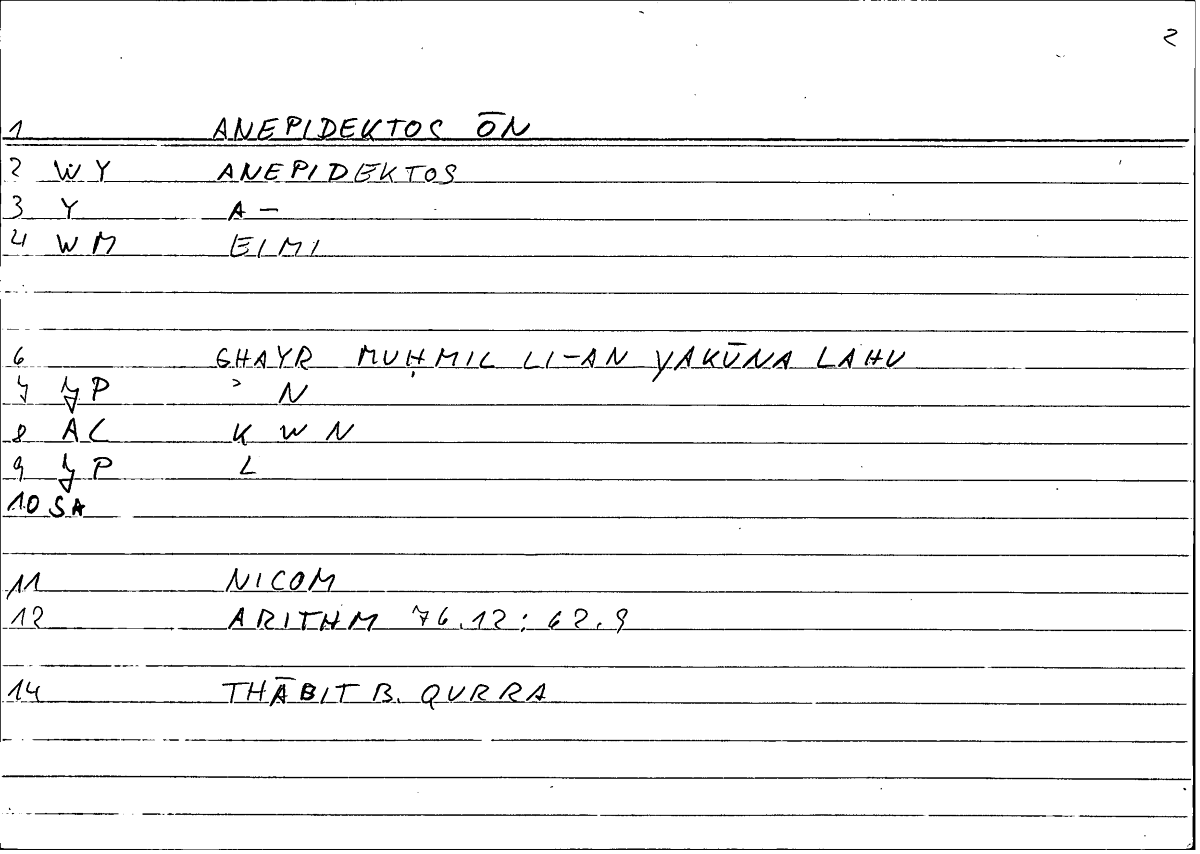 2
1 ANEPIDEKTOS ŌN
2 WY ANEPIDEKTOS
3 Y A –
4 WM EIMI
6 GHAYR MUḤMIL LI-AN YAKŪNA LAHU
7 P ʾ N
8 AC K W N
9 P L
10 SA
11 NICOM
12 ARITHM 76.12; 62.9
14 THĀBIT B. QURRA